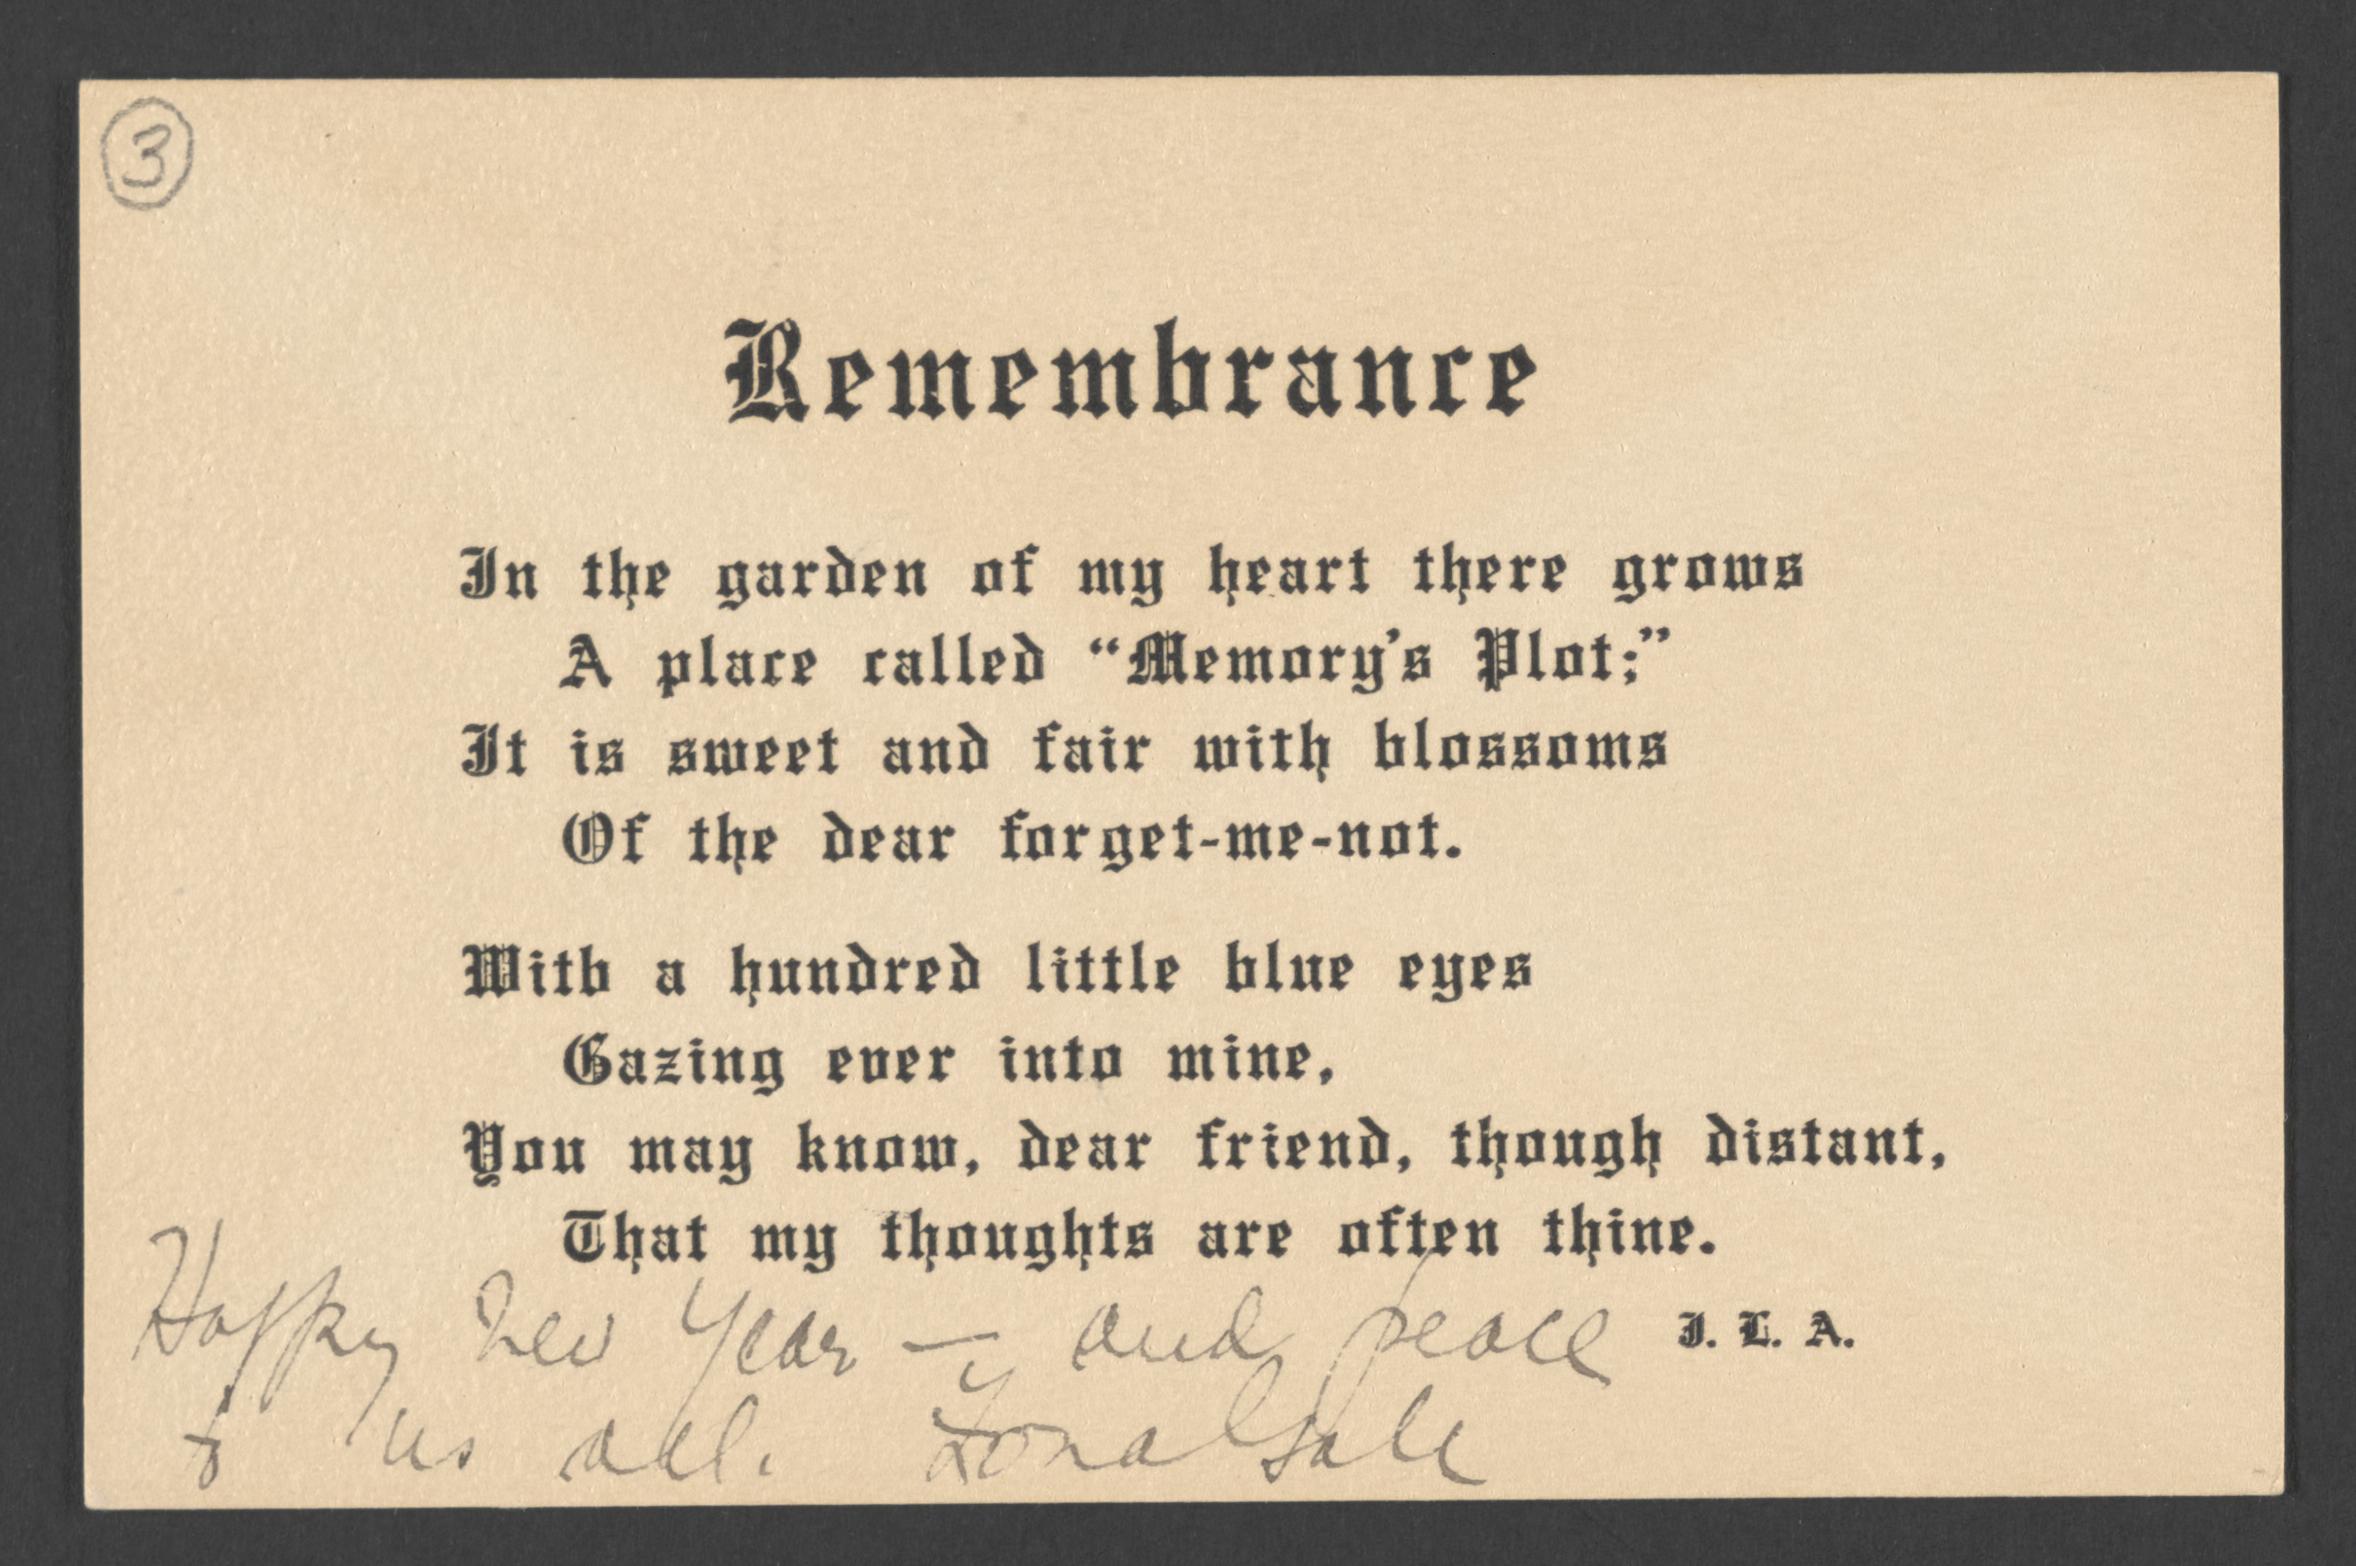 3
Remembrance
In the garden of my heart there grows
A place called “Memory’s Plot;”
It is sweet and fair with blossoms
Of the dear forget-me-not.
With a hundred little blue eyes
Gazing ever into mine,
You may know, dear friend, though distant,
That my thoughts are often thine.
J. L. A.
Happy New Year — and peace
to us all. Zona Gale